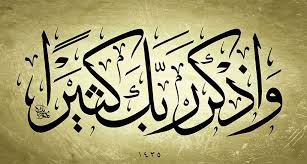 وَاذْكُر رَّبَّكَ كَثِيرًا
١٤٣٥